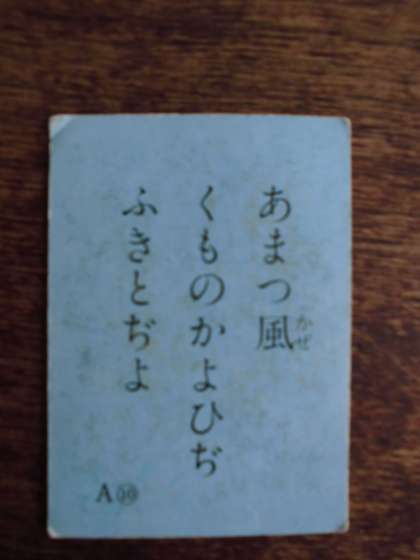 あまつ風
かぜ
くものかよひぢ
ふきとぢよ
A